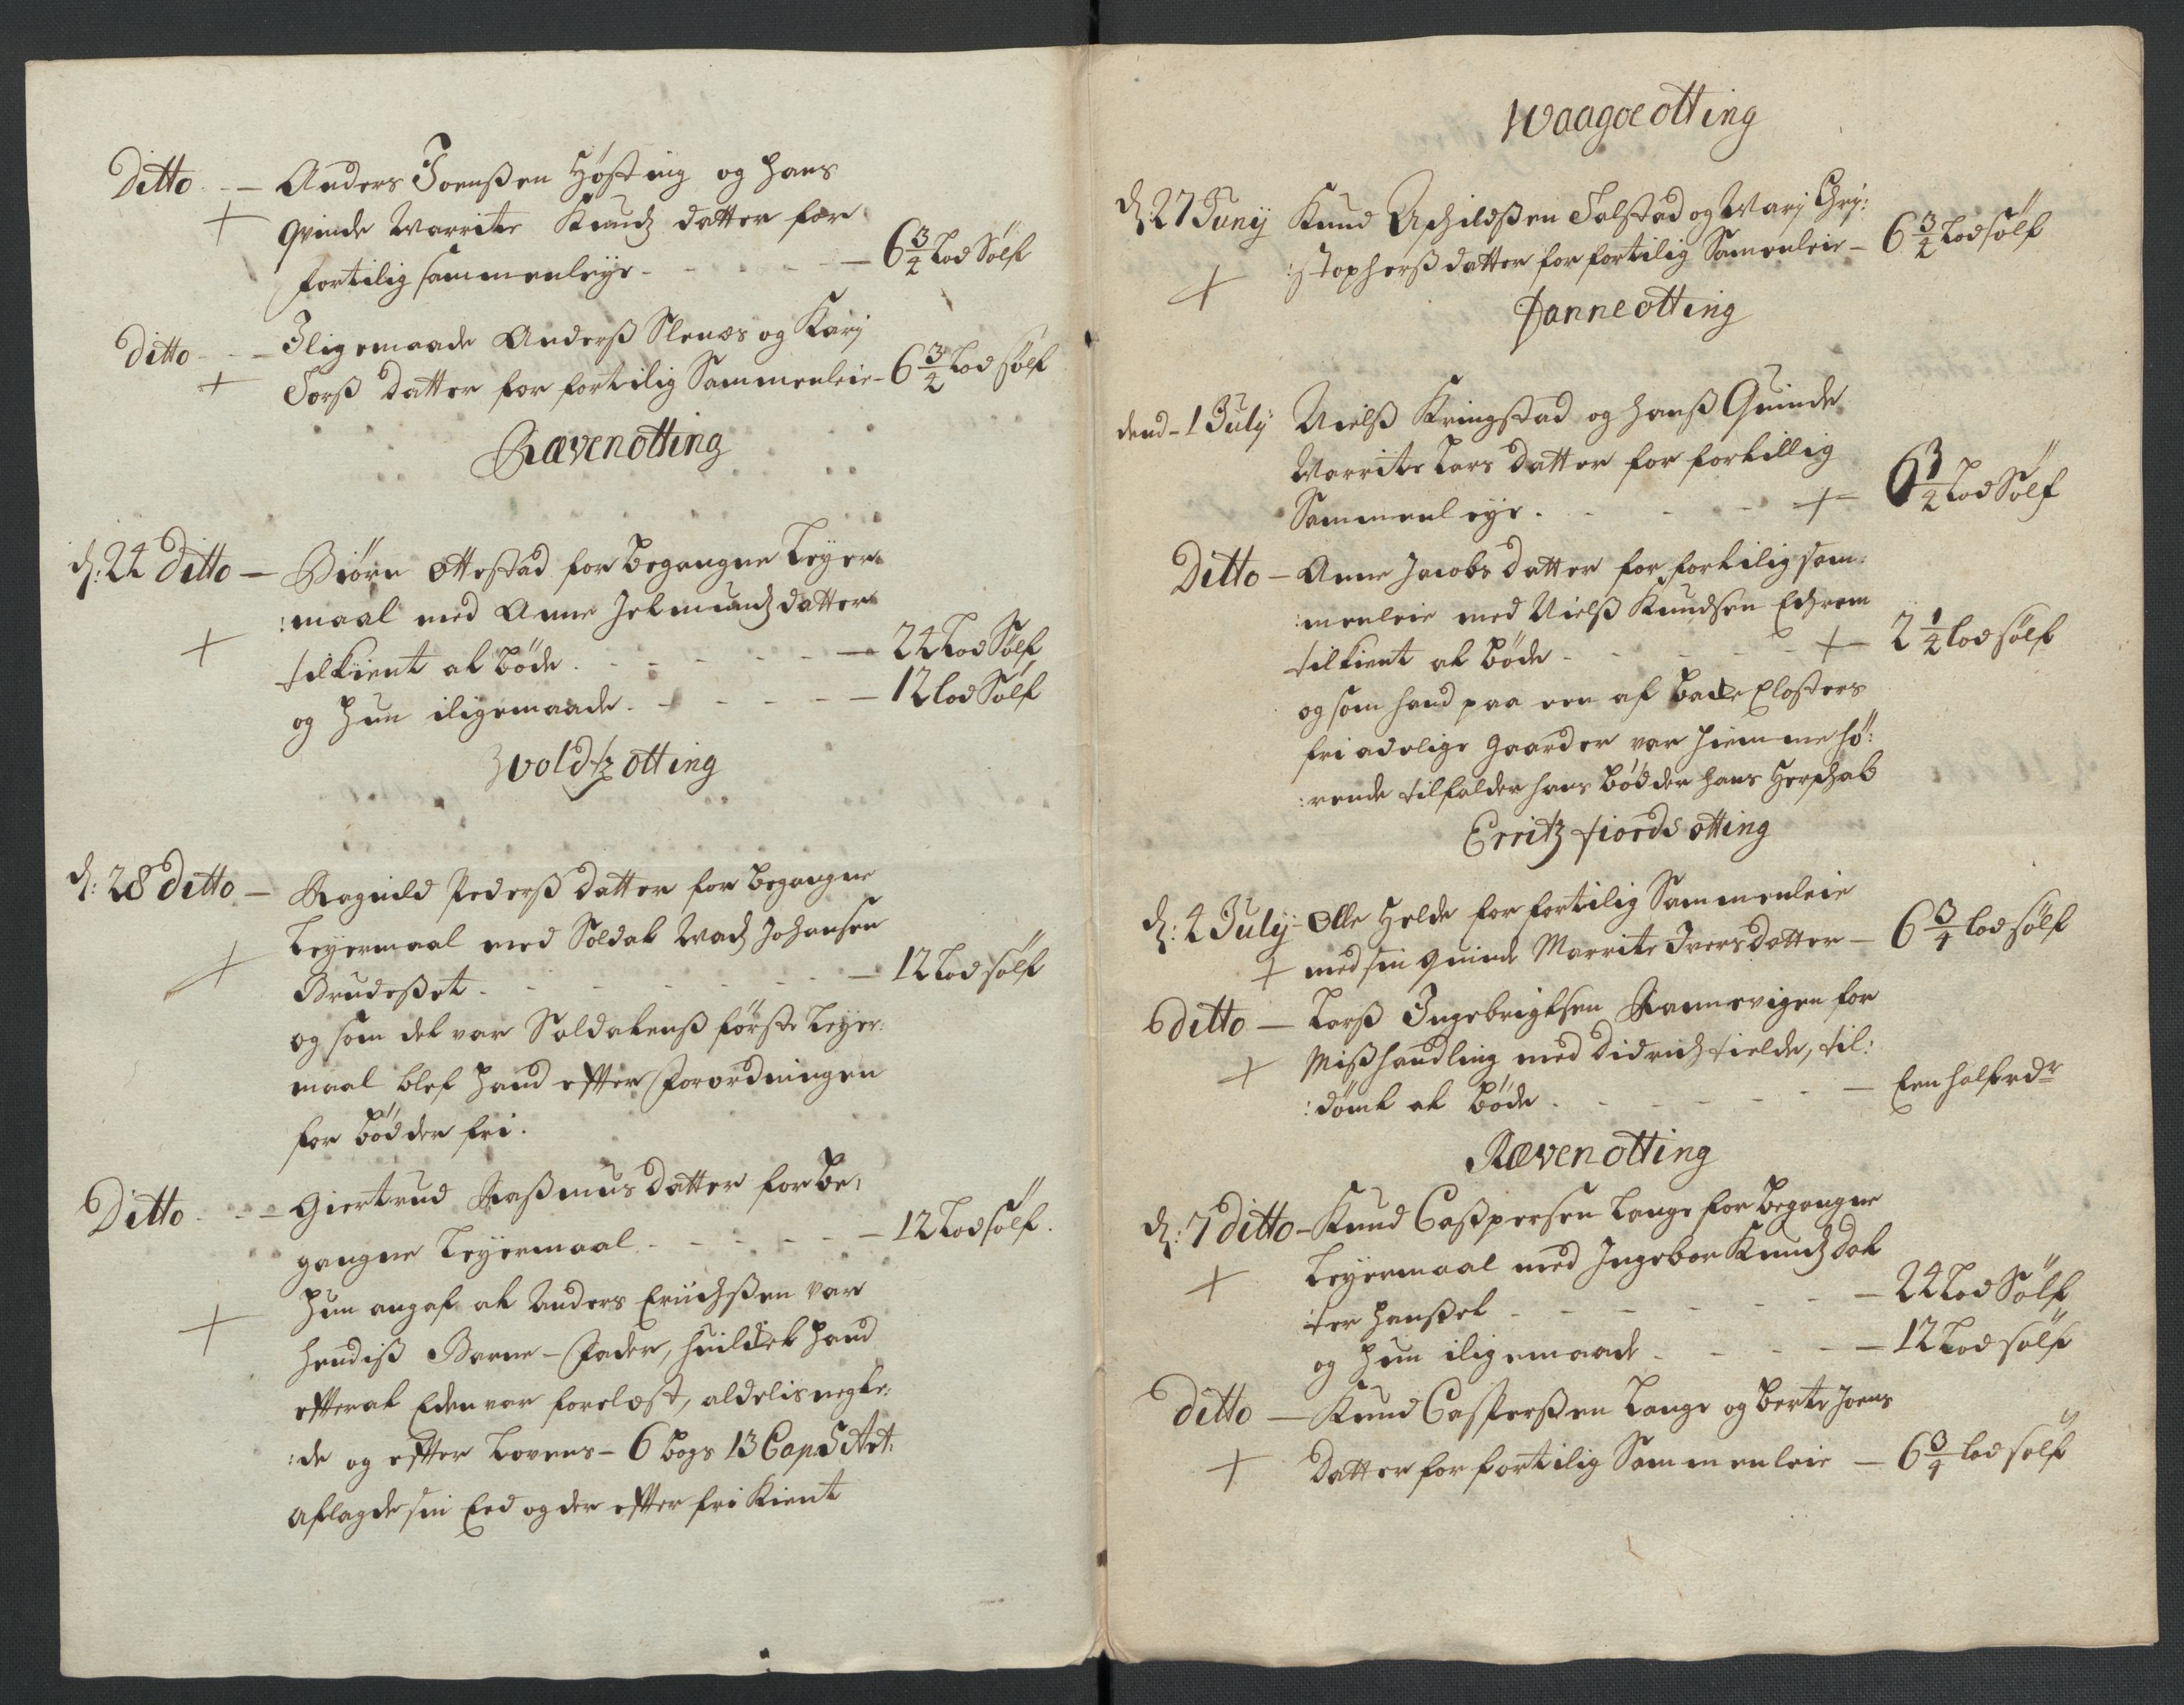 Ditto - - Anders Joensßen Høsting og hans
+ qvinde Marrite Knudz datter for
fortilig sammenleye - - - 6 3/4 Lod Sølf
Ditto - - Iligemaade Anderß Slenæs og Karj
+ Torß datter for fortilig Sammenleie - 6 3/4 Lod sølf
Rævenotting
d: 24 Ditto - Biørn Ottestad for begangne Leyer:
:maal med Anne Jetmundz datter
+ tilkient at bøde - - - 24 Lod Sølf
og hun iligemaade - - - 12 lod Sølf
Voldtz otting
d: 28 ditto - Ragnild Pederß datter for begangne
Leyermaal med Soldat Madz Johansen
+ Brudeßet - - - 12 Lod sølf
og som det var Soldatenß første Leyer:
maal blef hand efter Forordningen
for bødder fri.
Ditto - - Giertrud Raßmus datter for be:
gangne Leyermaal - - - 12 Lod sølf.
hun angaf at Anders Erichßen var
+ hendiß Barne-Fader, huilcket hand
efter at Eden var forelæst, aldelis negte:
:de og efter Lovens - 6 bogs 13 Cap: 5 Art:
aflagde sin Eed og der efter fri kient
Waagøe otting
d: 27 Junij Knud Achildßen Talstad og Marj Chri:
+ :stopherß datter for fortilig Samenleie - 6 3/4 Lod sølf
Fanne otting
dend - 1 July Nielß Kringstad og hanß Quinde
Marrite Lars datter for fortillig
Sammenleye - - - + 6 3/4 Lod Sølf
Ditto - Anne Jacobs datter for fortilig sam:
:menleie med Nielß Knudsen
tilkient at bøde - - - + 2 1/4 lod sølf
og som hand paa een af Backe Closters
fri adelige gaarder var hiemmehø:
:rende tilfalder hans bødder hans Herschab
Erritz fiords otting
d: 4 July - Olle Helde for fortilig Sammenleie
+ med sin quinde Marrite Ivers datter - 6 3/4 lod sølf
Ditto - Larß Ingebrigtsen Rannevigen for
+ Mißhandling med Didrich Fielde, til:
:dømt at bøde - - - Een half rdr
Rævenotting
d: 7 ditto - Knud Caßpersen Lange for begangne
+ Leyermaal med Ingebor Knudz dat
:ter Hanßet - - - 24 Lod Sølf
og hun iligemaade - - - 12 Lod sølf
Ditto - Knud Casperßen Lange og berte Joens
+ datter for fortilig Sammenleie - 6 3/4 lod sølf